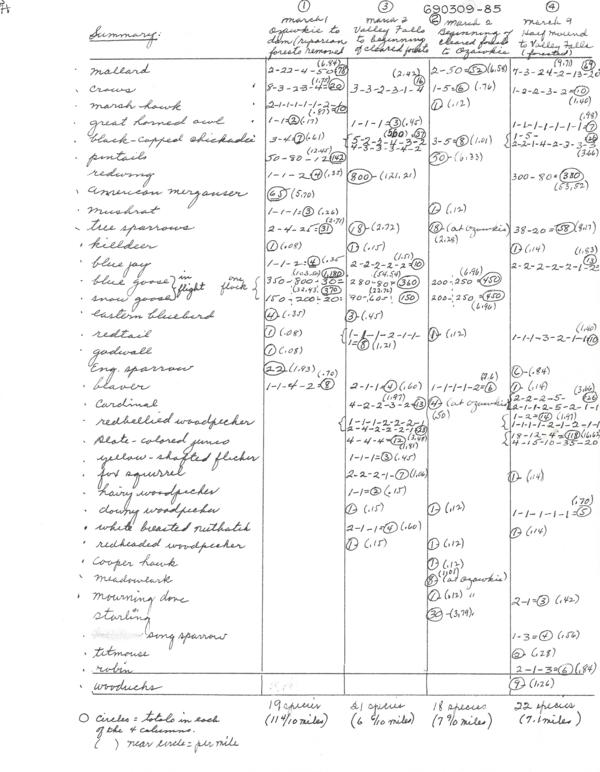 ① ③ 690309-85 ④
Summary: March 1 March 2 ② March 2 March 9
Ozawkie to Valley Falls Beginning of Half Mound
dam (riparian to beginning cleared forests to Valley Falls
forests removed of cleared forests to Ozawkie (forested)
mallard 2-22-4-50 (78) (6.84) (2.42) (16) 2-50=(52)(6.58) 7-3-24-2-13-20 (9.71) (69)
crows 8-3-2-3-4=(20) (1.70) 3-3-2-3-1-4 1-5=(6)(.76) 1-2-2-3-2=(10) (1.40)
marsh hawk 2-1-1-1-1-1-2-(10) (.87) (1)(.12)
great horned owl 1-1=(2)(.17) 1-1-1=(3)(.45) 1-1-1-1-1-1-1=(7) (.98)
black-capped chickadee 3-4=(7)(.61) 5-2-2-4-3-2 4-3-3-3-4-2 (37) 3-5=(8)(1.01) 1-5- 2-2-1-4-2-3-3-3 (26) (3.66)
pintails 50-80-12(142) (12.45) (50)-(6.33)
redwing 1-1-2-(4)(.35) (800)-(121.21) 300-80=(380) (53.52)
American merganser (65)(5.70)
muskrat 1-1-1=(3)(.26) (1)(.12)
tree sparrows 2-4-25=(31) (2.71) (18)-(2.72) (18)(at Ozawkie) (2.28) 38-20=(58)(8.17)
killdeer (1)(.08) (1)-(.15) (1)-(.14) (1.83)
blue jay 1-1-2=(4)(.35 2-2-2-2-2=(10) (1.51) 2-2-2-2-2-1-2 (13)
blue goose } in one { 350-800-30=(1,180) (103.50) 280-80=(360) (54.54) 200-250=(450) (6.96)
snow goose } flight flock { 150-200-20=(370) (32.45) 90-60=(150) (22.72) 200-250=(450) (6.96)
eastern bluebird (4)-(.35) (3)-(.45)
redtail (1)(.08) 1-1-1-2-1-1- 1=(8)(1.21) (1)-(.12) 1-1-1-3-2-1-1(10) (1.40)
gadwall (1)(.08)
Eng. sparrow (22)(1.93) (6)-(.84)
beaver 1-1-4-2=(8) (.70) 2-1-1(4)(.60) 1-1-1-1-2=(6) (7.6) (1)-(.14)
cardinal 4-2-2-3-2=(13) (1.97) (4)(at Ozawkie) (.50) 2-2-2-5- 2-1-1-2-5-2-1-1 (26) (3.66)
redbellied woodpecker 1-1-1-2-2-2-1 2-4-2-2-2-1(23) 1-2=(14)(1.97) 1-1-1-1-2-1-2-1-1
slate-colored junco 4-4-4=(12) (1.81) 18-12-4=(118)(16.62) 4-15-10-35-20
yellow-shafted flicker 1-1-1=(3)(.45)
fox squirrel 2-2-2-1-(7)(1.06) (1)-(.14)
hairy woodpecker 1-1=(2)(.15)
downy woodpecker (1)-(.15) (1)-(.12) 1-1-1-1-1=(5) (.70)
white breasted nuthatch 2-1-1=(4)(.60) (1)-(.14)
redheaded woodpecker (1)-(.15) (1)-(.12)
Cooper hawk (1)-(.12)
meadowlark (8)-(at Ozawkie) (1.01)
mourning dove (1)-(.12) " 2-1=(3)(.42)
starling (30)-(3.79)
song sparrow 1-3=(4)(.56)
titmouse (2)(.28)
robin 2-1-3=(6)(.84)
woodchs (9)-(1.26)
19 species 21 species 18 species 22 species
(11 4/10 miles) (6 6/10 miles) (7 9/10 miles) (7.1 miles)
○ circles = totals in each
of the 4 columns.
( ) near circle = per mile